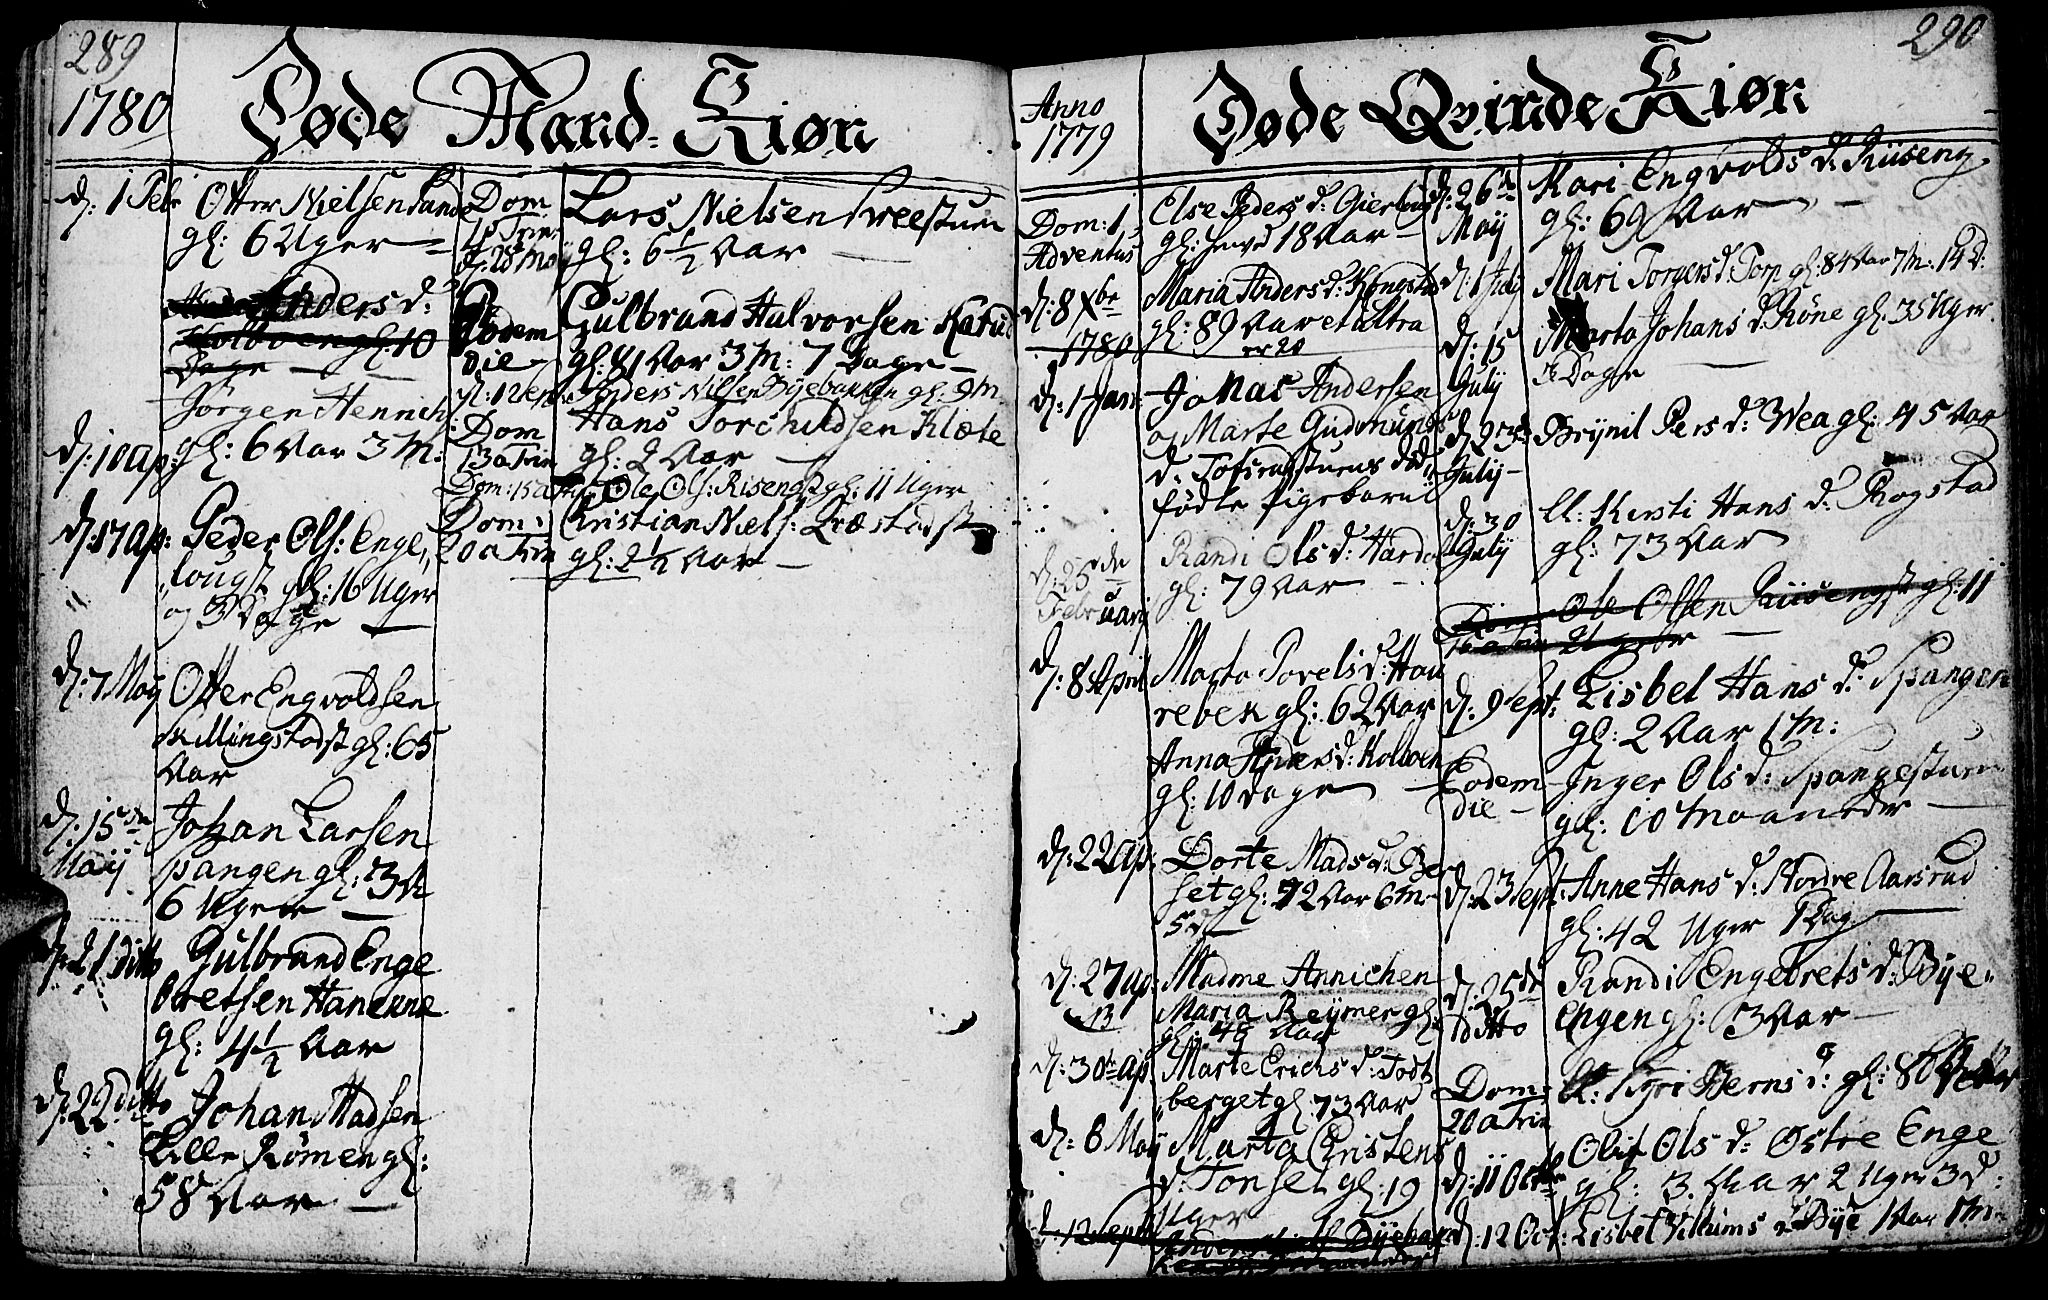 289
1780
Døde Mand-Kiøn
d: 1 Febr
Otter Nielsen Lande
gl: 6 Uger
Anders d:
Kolboen gl: 10
Dage
Jørgen Henrich
d: 10 Ap:
gl: 6 Aar 3 M:
d: 17 Ap:
Peder Ols: Enge
lougst gl: 16 Uger
og 3 Dage
d: 7 Maij
Otter Engvoldsen
Killingstadst gl: 65
Aar
d: 15de
Maij
Johan Larsen
Spangen gl: 3 A
6 Uger
d: 21 ditto
Gulbrand Enge
bretsen Hanerne
gl: 4 1/2 Aar
d: 22 ditto
Johan Madsen
Lille Rømen gl:
58 Aar
Dom
1 a Trin
d: 28 Maij
Lars Nielsen Træestuen
gl: 6 1/2 Aar
Eodem
die
Gulbrand Halvorsen
gl: 81 Aar 3 M: 7 Dage
d: 12 Sept
Anders Nilsen Byebakken gl: 9 M
Dom
13 a Trin
Hans Torchildsen Klæte
gl: 2 Aar
Dom: 15 a Trin
Ole Ols: Risengst gl: 11 Uger
Dom:
20 a Trin
Cristian Niels: Præstadst
gl: 2 1/2 Aar
290
Anno
1779
Døde Qvinde Kiøn
Dom: 1
Adventus
Else Peders d:
gl: 18 Aar
d: 8 Xbr
Maria Anders d: Kongstad
gl: 89 Aar et ultra
1780
d: 1 Jan:
Jonas Andersen
og Marte Gudmunds
d: Tofsengstuens død
fødte Pigebarn
d: 25de
Februarij
Randi Ols d: Harda
gl: 79 Aar
d: 8 April
Marta Povels d: Hau
rebek gl: 62 Aar
Anna Anders d: Kolboen
gl: 10 Dage
d: 22 Ap:
Dorte Mads d: Ge
set gl: 72 Aar 6 M:
5 d
d: 27 Ap:
Madme Annichen
Maria Reymer gl:
gl: 48 Aar
d: 30 Ap
Marte Erichs d: Todt
berget gl: 73 Aar
d: 6 Maij
Marta Cristens
d: Tonset gl: 19
Uger
d: 12 Sept
d: 26de
Maij
Kari Engvolds d: Riiseng
gl: 69 Aar
d: 1 July
Mari Torgers d: Torp gl: 84 Aar 7 M: 14 D:
d: 15
July
Marta Johans d: Røne gl: 35 Uger
Dage
d: 23
July
Brynil Pers d: Wea gl: 45 Aar
d: 30
July
Kirsti Hans d: Rogstad
gl: 73 Aar
Ole Olsen Riisengst gl: 11
d: 9 Sept:
Lisbet Hans d: Spangen
gl: 2 Aar 1 M:
Eodem
die
Inger Ols d: Spangestuen
gl: 10 Maaneder
d: 23 Sept:
Anne Hans d: Nordre Aarsrud
gl: 42 Uger 1 Dag
d: 25de
ditto
Randi Engebrets d: Bye
Engen gl: 3 Aar
Dom:
20 a Trin
Kyri Berns d: gl: 80 Aar
d: 11 Octbr
Olit Ols d: Østre Enge
gl: 3 Aar 2 Uger 3 d:
d: 12 Oct:
Lisbet Villums d: Bye 1 Aar 1 M: